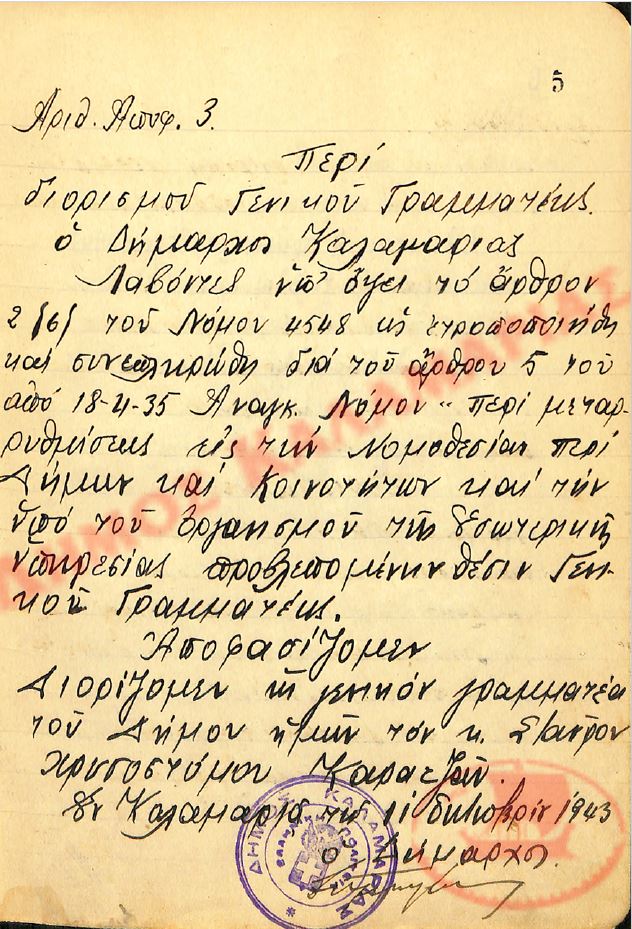 5
Αριθ. Αποφ. 3.
Περί
διορισμού Γενικού Γραμματέως.
ὁ Δήμαρχος Καλαμαριας
Λαβόντες ὑπ' ὄψει τό ἄρθρον
2 (6) τοῦ Νόμου 4548 ὡς ἐτροποποιήθη
καί συνεπληρώθη διά τοῦ ἄρθρου 5 τοῦ
ἀπό 18-4-35 Αναγκ. Νόμου "περί μεταρ-
ρυθμίσεως εἰς τήν Νομοθεσίαν περί
Δήμων καί Κοινοτήτων καί τήν
ὑπό τοῦ Οργανισμοῦ τῆς Εσωτερικῆς
ὑπηρεσίας προβλεπομένην θέσιν Γεν-
κοῦ Γραμματέως.
Αποφασίζομεν
Διορίζομεν ὡς γενικόν γραμματέα
τοῦ Δήμου ἡμῶν τον κ. Σταῦρον
Χρυσοστόμου Καρατζᾶν.
Εν Καλαμαριᾷ τῇ 11 Οκτωβρίου 1943
ὁ Δήμαρχος
ΔΗΜΟΣ ΚΑΛΑΜΑΡΙΑΣ
ΕΛΛΗΝΙΚΗ ΠΟΛΙΤΕΙΑ
ΔΗΜΟΣ ΚΑΛΑΜΑΡΙΑΣ